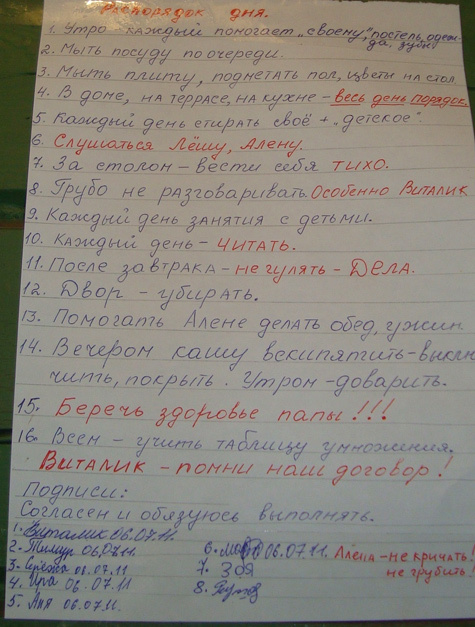 Распорядок дня.
1. Утро каждый помогает „своему", постель, одеж-
да, зубы
2. Мыть посуду по очереди.
3. Мыть плиту, подметать пол, цветы на стол.
4. В доме, на террасе, на кухне – весь день порядок.
5. Каждый день стирать своё + „детское"
6. Слушаться Лёшу, Алену.
7. За столом – вести себя тихо.
8. Грубо не разговаривать. Особенно Виталик
9. Каждый день занятия с детьми.
10. Каждый день – читать.
11. После завтрака – не гулять – Дела.
12. Двор – убирать.
13. Помогать Алене делать обед, ужин.
14. Вечером кашу вскипятить – выклю
чить, покрыть. Утром – доварить.
15. Беречь здоровье папы!!!
16. Всем – учить таблицу умножения.
Виталик – помни наш договор!
Подписи:
Согласен и обязуюсь выполнять.
1. Виталик 06.07.11.
2. Тимур 06.07.11.
3. Серёжа 06.07.11
4. Ира 06.07.11
5. Аня 06.07.11.
6. 06.07.11.
7. Зоя
8.
Алёна – не кричать!
не грубить!